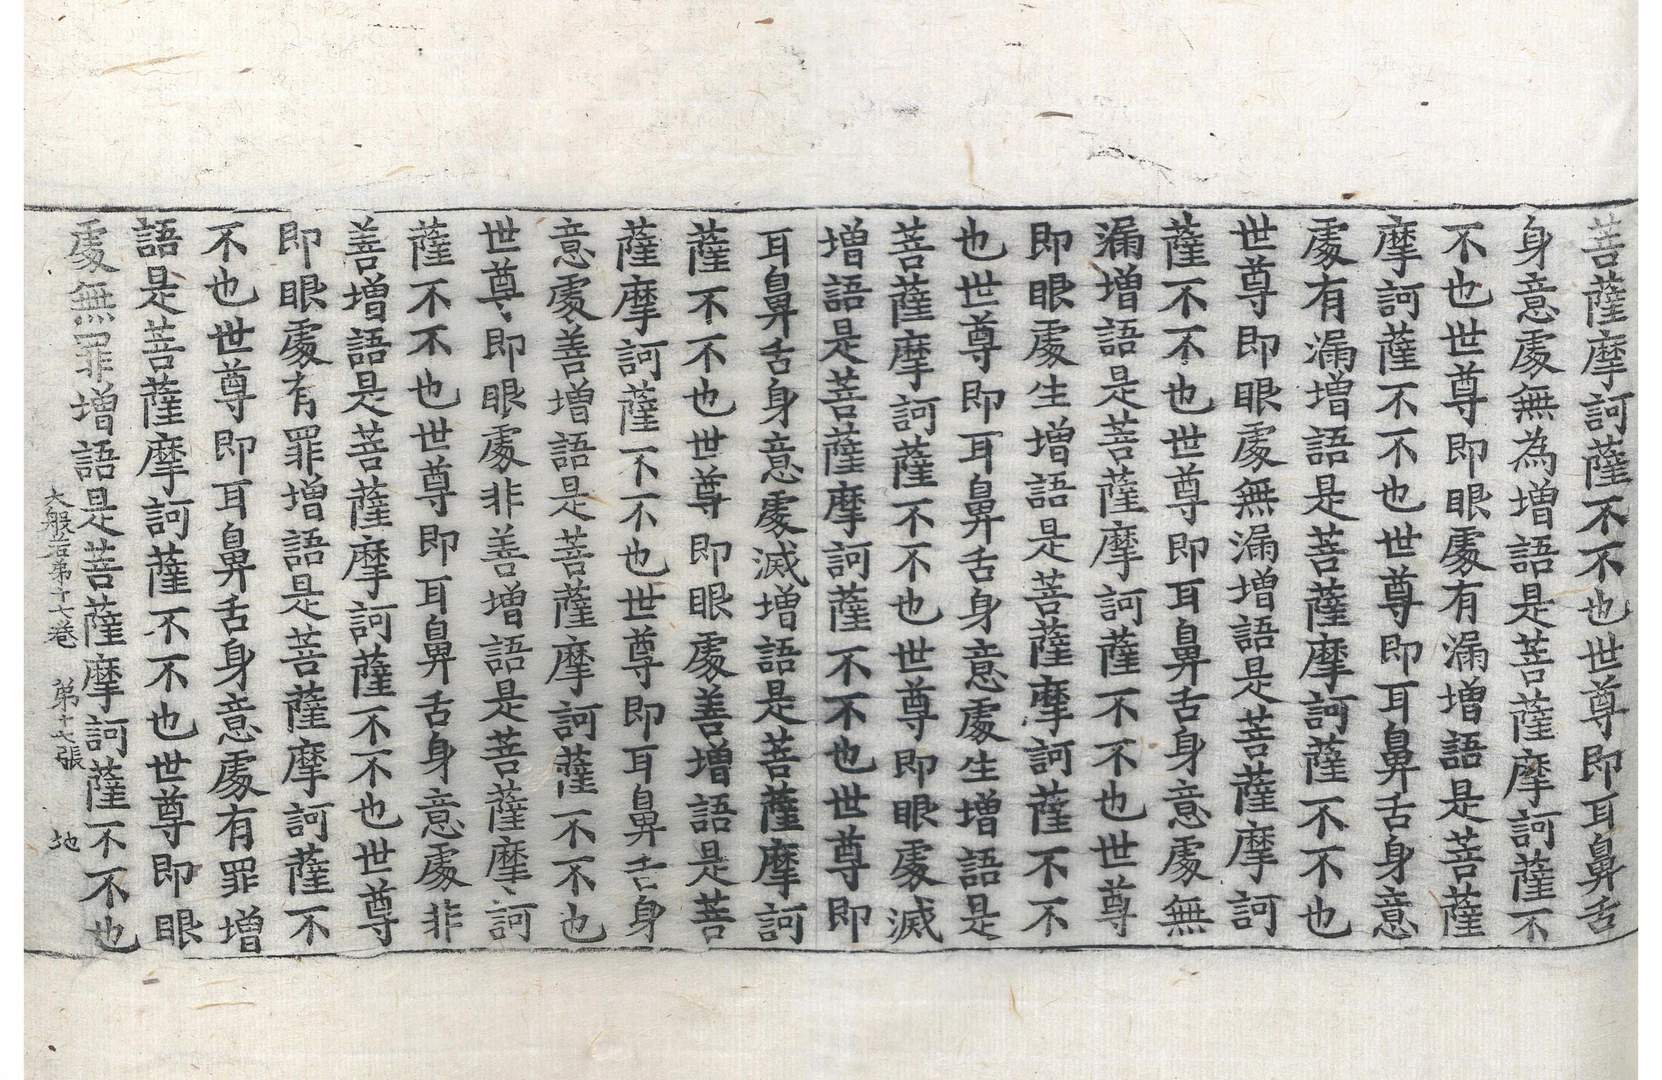 菩薩摩訶薩不不也世尊即耳鼻舌
身意處無為增語是菩薩摩訶薩不
不也世尊即眼處有漏增語是菩薩
摩訶薩不不也世尊即耳鼻舌身意
處有漏增語是菩薩摩訶薩不不也
世尊即眼處無漏增語是菩薩摩訶
薩不不也世尊即耳鼻舌身意處無
漏增語是菩薩摩訶薩不不也世尊
即眼處生增語是菩薩摩訶薩不不
也世尊即耳鼻舌身意處生增語是
菩薩摩訶薩不不也世尊即眼處滅
增語是菩薩摩訶薩不不也世尊即
耳鼻舌身意處滅增語是菩薩摩訶
薩不不也世尊即眼處善增語是菩
薩摩訶薩不不也世尊即耳鼻舌身
意處善增語是菩薩摩訶薩不不也
世尊即眼處非善增語是菩薩摩訶
薩不不也世尊即耳鼻舌身意處非
善增語是菩薩摩訶薩不不也世尊
即眼處有罪增語是菩薩摩訶薩不
不也世尊即耳鼻舌身意處有罪增
語是菩薩摩訶薩不不也世尊即眼
處無罪增語是菩薩摩訶薩不不也
大般若第十七卷 第十七張 地